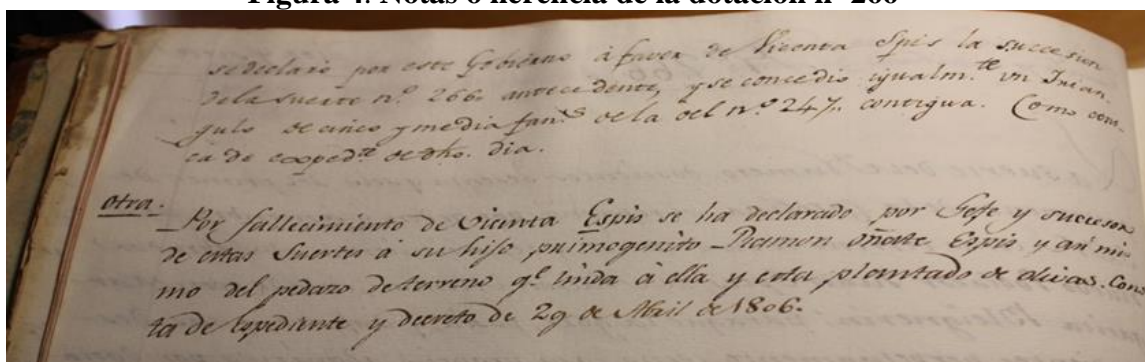 Figura 4. Notas o herencia de la dotación nº 266
se declaró por este Gobierno á favor de Vicenta Espis la succesion
de la suerte n.º 266. antecedente, y se concedio igualm.te un Trian-
gulo de cinco y media fan.s de la del n.º 247. contigua. Como cons-
ta de exped.te de dho. dia.
otra. Por fallecimiento de Vicenta Espis se ha declarado por Gefe y succesor
de estas Suertes á su hijo primogenito Ramon Oñate Espis y asi mis-
mo del pedazo de terreno q.e linda á ella y esta plantado de olivas. Cons-
ta de expediente y decreto de 29 de Abril de 1806.